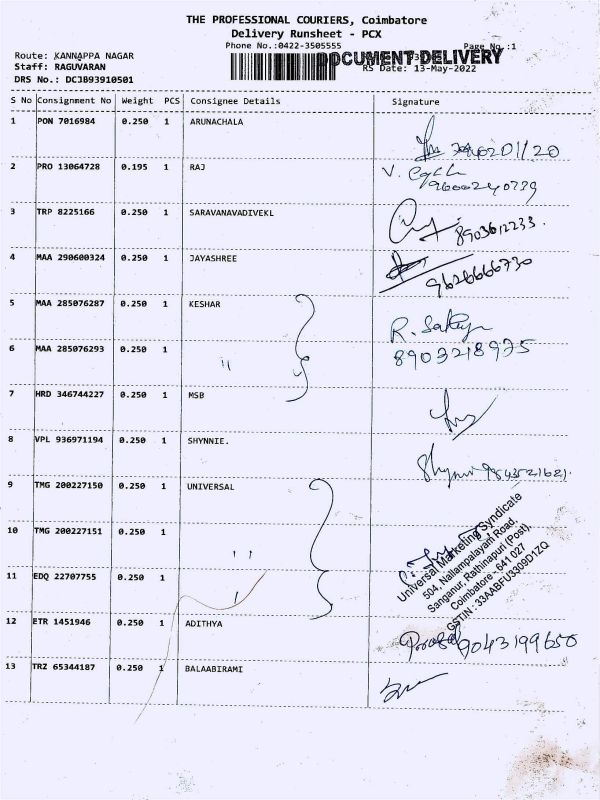 THE PROFESSIONAL COURIERS, Coimbatore
Delivery Runsheet - PCX
Phone No.:0422-3505555
Page No.:1
Route: KANNAPPA NAGAR
DOCUMENT DELIVERY
Staff: RAGUVARAN
RS Date: 13-May-2022
DRS No.: DCJB93910501
S No Consignment No Weight PCS Consignee Details Signature
1 PON 7016984 0.250 1 ARUNACHALA
2 PRO 13064728 0.195 1 RAJ
9600240739
3 TRP 8225166 0.250 1 SARAVANAVADIVEKL
8903612233.
4 MAA 290600324 0.250 1 JAYASHREE
9626666730
5 MAA 285076287 0.250 1 KESHAR
6 MAA 285076293 0.250 1 "
8903218975
7 HRD 346744227 0.250 1 MSB
8 VPL 936971194 0.250 1 SHYNNIE.
9 TMG 200227150 0.250 1 UNIVERSAL
10 TMG 200227151 0.250 1 "
11 EDQ 22707755 0.250 1
Universal Marketing Syndicate
504, Nallampalayam Road,
Sanganur, Rathinapuri (Post),
Coimbatore - 641 027
GSTIN : 33AABFU3309D1ZQ
12 ETR 1451946 0.250 1 ADITHYA
9043199650
13 TRZ 65344187 0.250 1 BALAABIRAMI